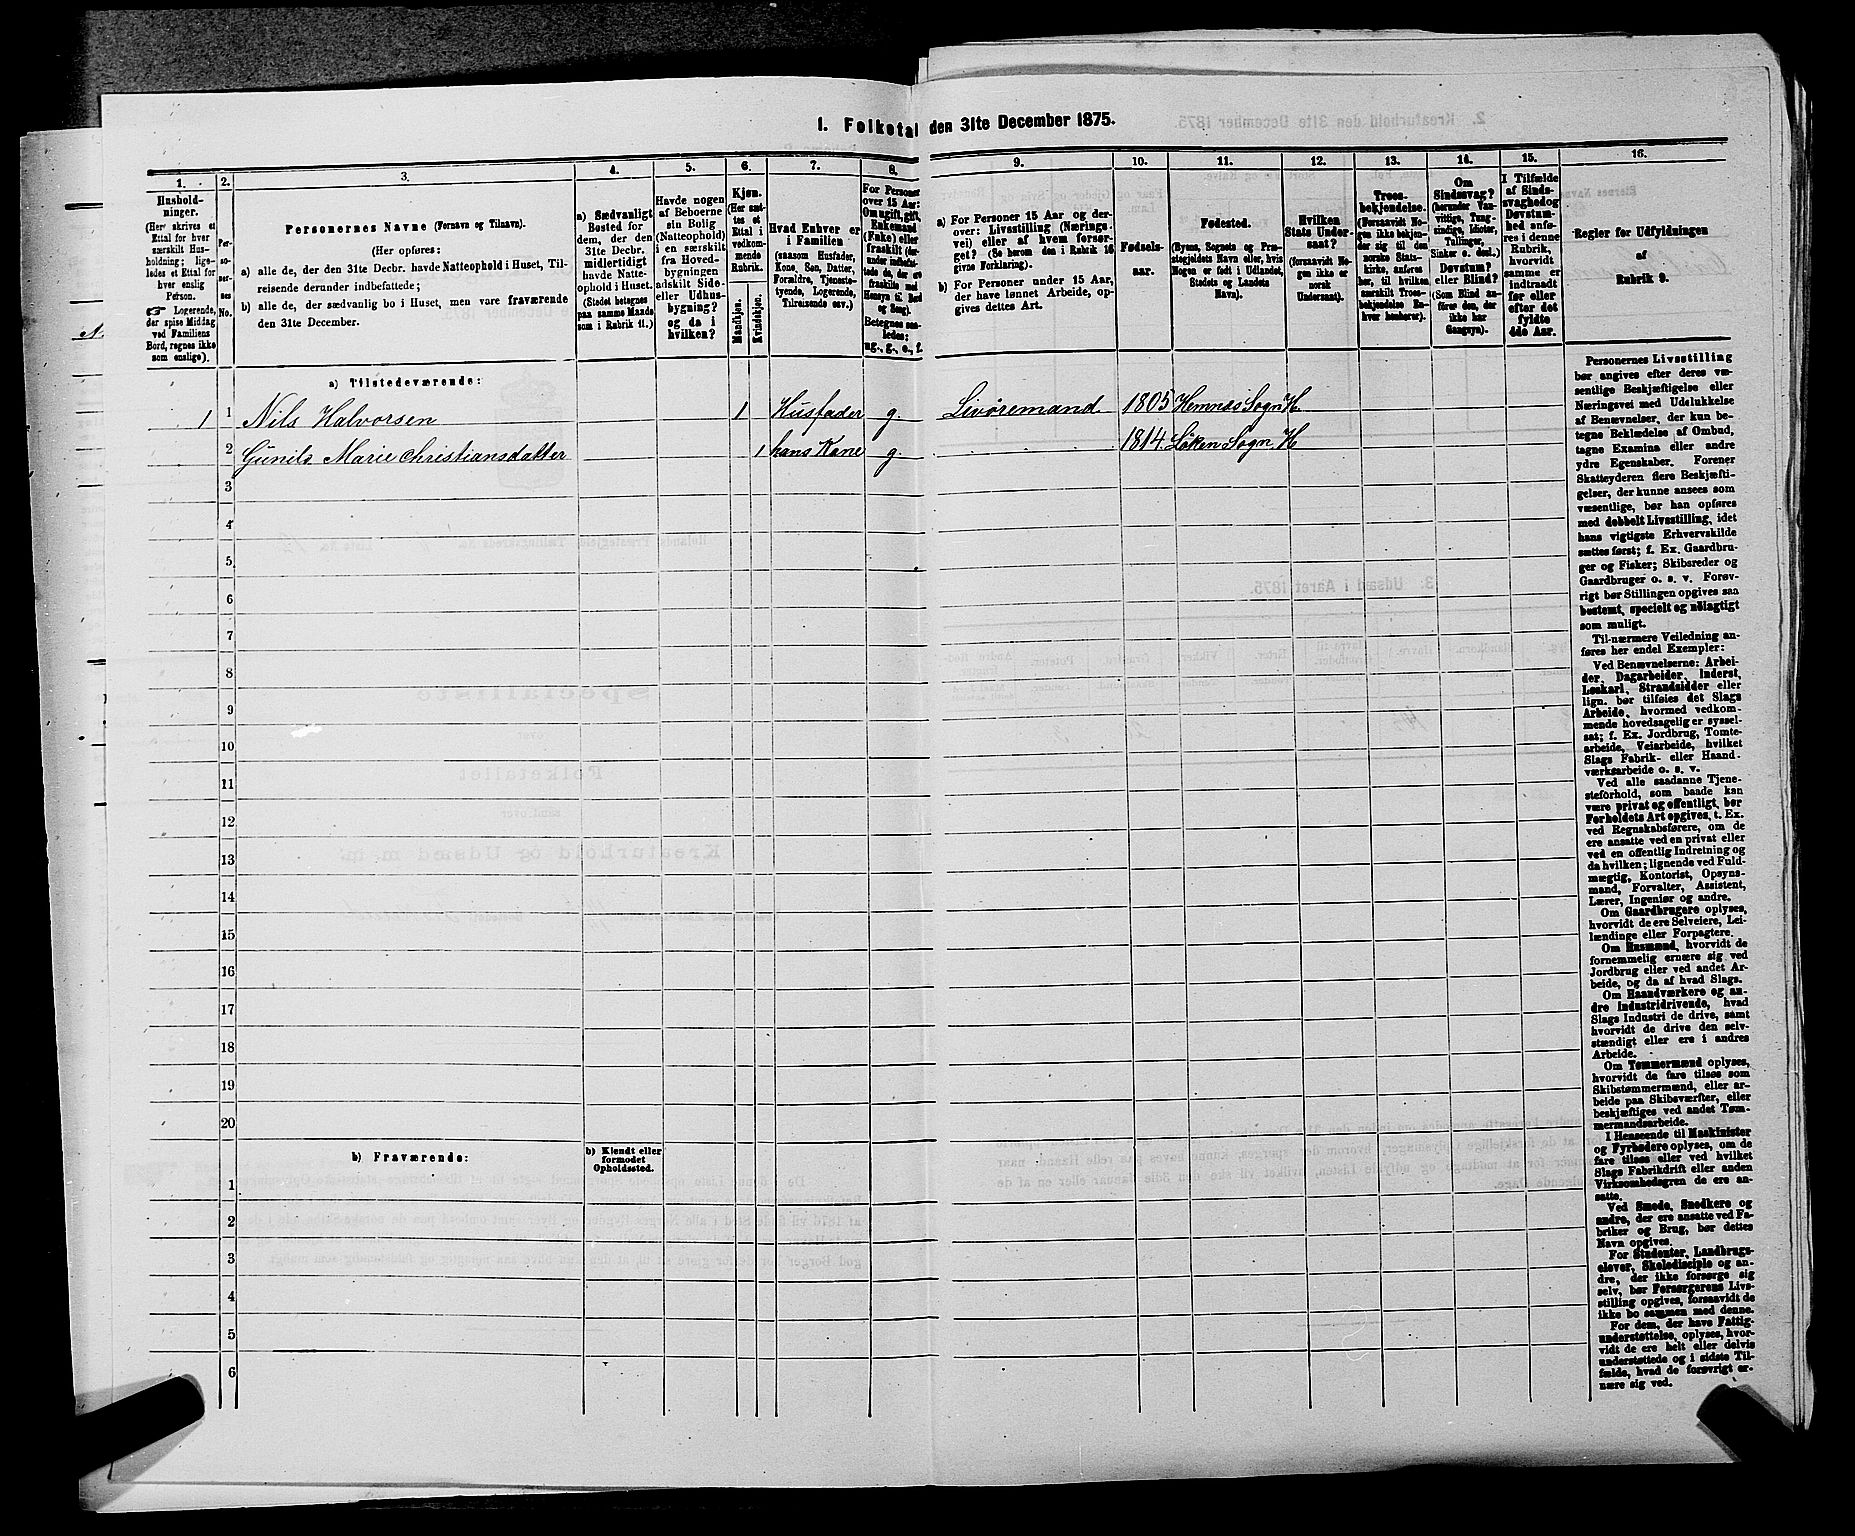 1. Folketal den 31te December 1875.
1. 2. 3. 4. 5. 6. 7. 8. 9. 10. 11. 12. 13. 14. 15. 16.
Husholdninger.
(Her skrives et
Ettal for hver
særskilt Husholdning; ligeledes et Ettal for
hver enslig
Person.
☞ Logerende,
der spise Middag
ved Familiens
Bord, regnes ikke
som enslige).
Personernes No.
Personernes Navne (Fornavn og Tilnavn).
(Her opføres:
a) alle de, der den 31te Decbr. havde Natteophold i Huset, Tilreisende derunder indbefattede;
b) alle de, der sædvanlig bo i Huset, men vare fraværende
den 31te December.
a) Sædvanligt
Bosted for
dem, der den
31te Decbr.
midlertidigt
havde Natteophold i Huset.
(Stedet betegnes
paa samme Maade
som i Rubrik 11.)
Havde nogen
af Beboerne
sin Bolig
(Natteophold)
i en særskilt
fra Hovedbygningen
adskilt Side-
eller Udhusbygning?
og da i
hvilken?
Kjøn.
(Her sættes et
Ettal i
vedkommende
Rubrik.
Mandkjøn.
Kvindekjøn.
Hvad Enhver er
i Familien
(saasom Husfader,
Kone, Søn, Datter,
Forældre, Tjenestetyende, Logerende,
Tilreisende osv.)
For Personer
over 15 Aar:
Om ugift, gift,
Enkemand
(Enke) eller
fraskilt (derunder indbefattede de, der ere
fraskilte med
Hensyn til Bord
og Seng).
Betegnes saaledes:
ug., g., e., f.
a) For Personer 15 Aar og derover: Livsstilling (Næringsvei) eller af hvem forsørget? (Se herom den i Rubrik 16
givne Forklaring).
b) For Personer under 15 Aar,
der have lønnet Arbeide, opgives dettes Art.
Fødselsaar.
Fødested.
(Byens, Sognets og Præstegjeldets Navn eller, hvis
Nogen er født i Udlandet,
Stedets og Landets
Navn).
Hvilken
Stats Undersaat?
(forsaavidt Nogen ikke er
norsk
Undersaat).
Troesbekjendelse.
(Forsaavidt Nogen ikke bekjender sig til den
norske Statskirke, anføres
her, til hvilken
særskilt Troesbekjendelse Enhver henhører).
Om
Sindssvag?
(herunder Vanvittige, Tungsindige, Idioter,
Tullinger,
Sinker o. desl.)
Døvstum?
eller Blind?
(Som Blind anføres den, der
ikke har
Gangsyn).
I Tilfælde
af Sindssvaghed og
Døvstumhed anføres i denne
Rubrik,
hvorvidt
samme er
indtraadt
før eller
efter det
fyldte
4de Aar.
Regler for Udfyldningen
af
Rubrik 9.
a) Tilstedeværende:
1 1 Nils Halvorsen 1 Husfader g. Livøremand 1805 Hemnæs Sogn H
2 Gunild Marie Christiansdatter 1 hans Kone g. 1814 Løken Sogn H
3
4
5
6
7
8
9
10
11
12
13
14
15
16
17
18
19
20
b) Fraværende:
b) Kjendt eller
formodet
Opholdssted.
1
2
3
4
5
6
Personernes Livsstilling
bør angives efter deres væsentlige Beskjæftigelse eller
Næringsvei med Udelukkelse
af Benævnelser, der kun betegne Beklædelse af Ombud,
tagne Examina eller andre
ydre Egenskaber. Forener
Skatteyderen flere Beskjæftigelser, der kunne ansees som
væsentlige, bør han opføres
med dobbelt Livsstilling, idet
hans vigtigste Erhvervskilde
sættes først; f. Ex. Gaardbruger og Fisker; Skibsreder og
Gaardbruger o. s. v. Forøvrigt bør Stillingen opgives saa
bestemt, specielt og nøiagtigt
som muligt.
Til nærmere Veiledning anføres her endel Exempler:
Ved Benævnelserne: Arbeider, Dagarbeider, Inderst,
Løskarl, Strandsidder eller
lign. bør tilføies det Slags
Arbeide, hvormed vedkommende hovedsagelig er sysselsat; f. Ex. Jordbrug, Tomtearbeide, Veiarbeide, hvilket
Slags Fabrik- eller Haandværksarbeide o. s. v.
Ved alle saadanne Tjenesteforhold, som baade kan
være privat og offentligt, bør
Forholdets Art opgives, t. Ex.
ved Regnskabsførere, om de
ere ansatte ved en privat eller
ved en offentlig Indretning og
da hvilken; lignende ved Fuldmægtig, Kontorist, Opsynsmand, Forvalter, Assistent,
Lærer, Ingeniør og andre.
Om Gaardbrugere oplyses,
hvorvidt de ere Selveiere, Leilændinge eller Forpagtere.
Om Husmænd, hvorvidt de
fornemmelig ernære sig ved
Jordbrug eller ved andet Arbeide, og da af hvad Slags.
Om Haandværkere og andre Industridrivende, hvad
Slags Industri de drive, samt
hvorvidt de drive den selvstændigt eller ere i andres
Arbeide.
Om Tømmermænd oplyses,
hvorvidt de fare tilsøs som
Skibstømmermænd, eller arbeide paa Skibsværfter, eller
beskjæftiges ved andet Tømmermandsarbeide.
I Henseende til Maskinister
og Fyrbødere oplyses, om de
fare tilsøs eller ved hvilket
Slags Fabrikdrift eller anden
Virksomhedsgren de ere ansatte.
Ved Smede, Snedkere og
andre, der ere ansatte ved Fabriker og Brug, bør dettes
Navn opgives.
For Studenter, Landbrugselever, Skoledisciple og andre, der ikke forsørge sig
selv, bør Forsørgerens Livsstilling opgives, forsaavidt de
ikke bo sammen med denne.
For dem, der have Fattigunderstøttelse, oplyses, hvorvidt de ere helt eller delvis
understøttede og i sidste Tilfælde, hvad de forøvrigt ernære sig ved.